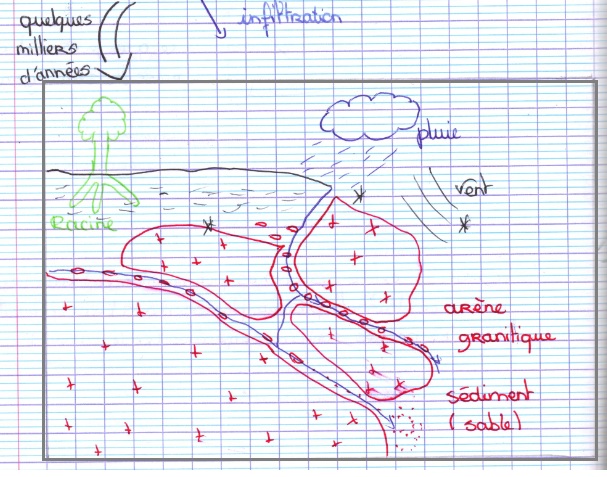 quelques
milliers
d'années
infiltration
pluie
vent
Racine
arène
granitique
sédiment
(sable)